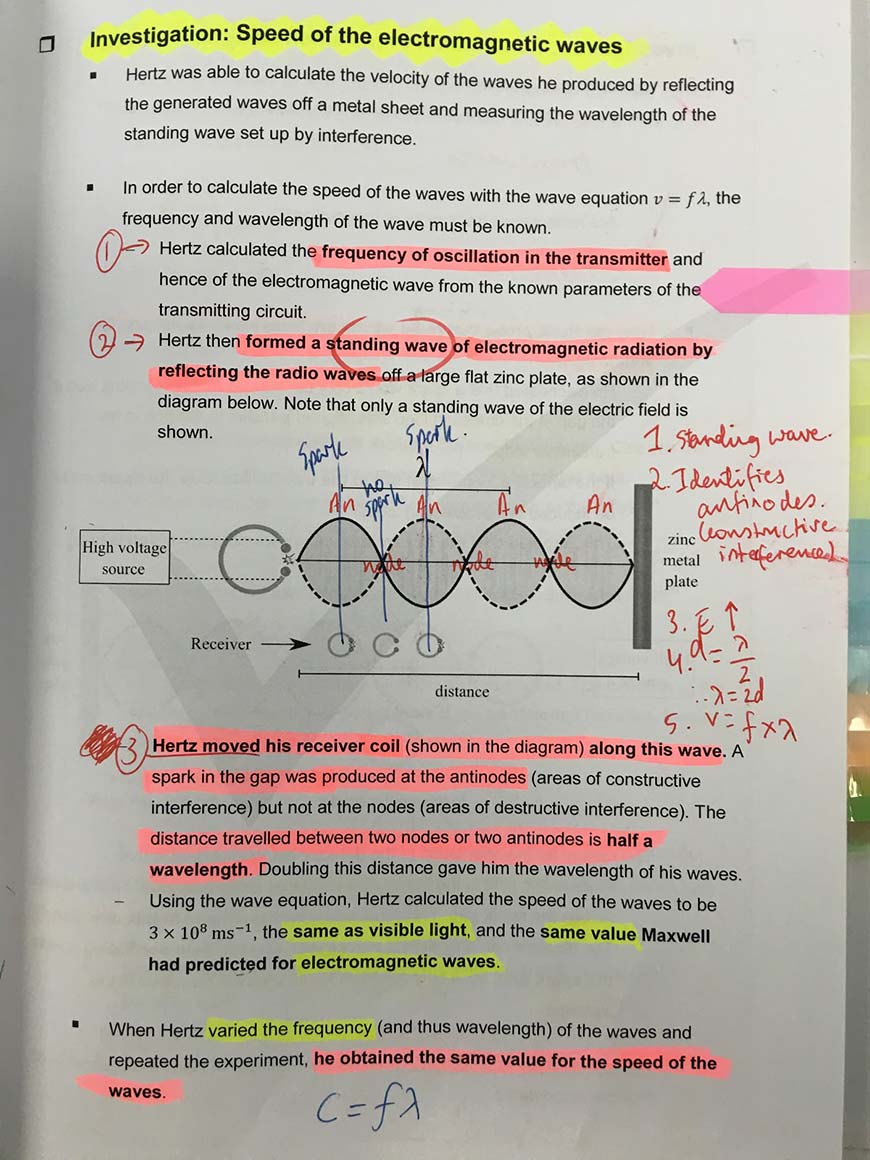 Investigation: Speed of the electromagnetic waves
Hertz was able to calculate the velocity of the waves he produced by reflecting
the generated waves off a metal sheet and measuring the wavelength of the
standing wave set up by interference.
In order to calculate the speed of the waves with the wave equation v = fλ, the
frequency and wavelength of the wave must be known.
1 → Hertz calculated the frequency of oscillation in the transmitter and
hence of the electromagnetic wave from the known parameters of the
transmitting circuit.
2 → Hertz then formed a standing wave of electromagnetic radiation by
reflecting the radio waves off a large flat zinc plate, as shown in the
diagram below. Note that only a standing wave of the electric field is
shown.
Spark
Spark.
λ
no
spark
An
An
An
An
node
node
node
High voltage
source
zinc
metal
plate
Receiver
distance
1. Standing wave.
2. Identifies
antinodes.
(constructive
interference)
3. E ↑
4. d = λ/2
∴ λ = 2d
5. v = f × λ
3 Hertz moved his receiver coil (shown in the diagram) along this wave. A
spark in the gap was produced at the antinodes (areas of constructive
interference) but not at the nodes (areas of destructive interference). The
distance travelled between two nodes or two antinodes is half a
wavelength. Doubling this distance gave him the wavelength of his waves.
– Using the wave equation, Hertz calculated the speed of the waves to be
3 × 10⁸ ms⁻¹, the same as visible light, and the same value Maxwell
had predicted for electromagnetic waves.
When Hertz varied the frequency (and thus wavelength) of the waves and
repeated the experiment, he obtained the same value for the speed of the
waves.
C = fλ